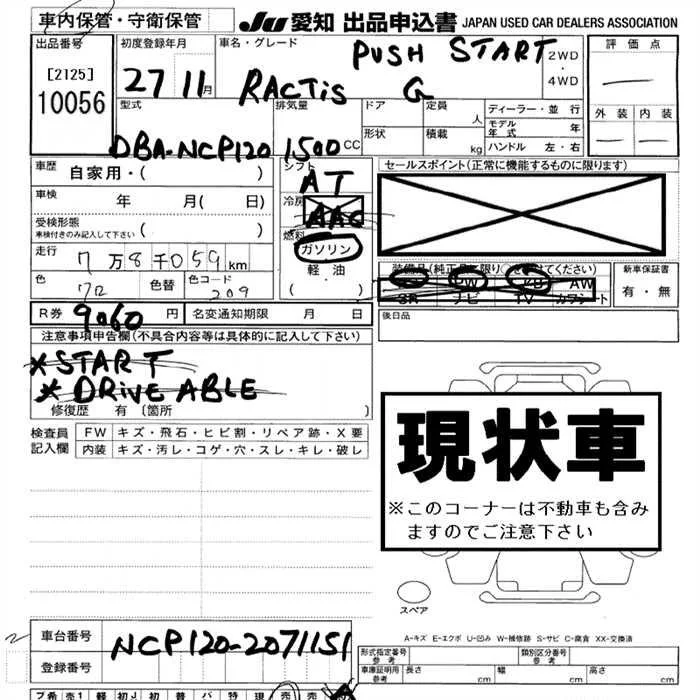 車内保管・守衛保管
JU 愛知 出品申込書 JAPAN USED CAR DEALERS ASSOCIATION
出品番号 初度登録年月 車名・グレード 評価点
[2125] 10056
27 11月
PUSH START
RACTIS G
2WD・4WD
外装 内装
型式 排気量 ドア 定員 人 ディーラー・並行
モデル年式 年
形状 積載 kg ハンドル 左・右
DBA-NCP120 1500 CC
車歴 自家用・( )
シフト AT
セールスポイント(正常に機能するものに限ります)
車検 年 月( 日)
冷房 AAC
受検形態 車検付きのみ記入して下さい ( )
燃料 ガソリン・軽油
走行 7万8千059km
( )
新車保証書
有・無
色 色替 色コード 209
AW
SR ナビ TV カワシート
R券 9060円 名変通知期限 月 日
後日品
注意事項申告欄(不具合内容等は具体的に記入して下さい)
*START
*DRIVE ABLE
修復歴 有〔箇所 〕
検査員記入欄
FW キズ・飛石・ヒビ割・リペア跡・X要
内装 キズ・汚レ・コゲ・穴・スレ・キレ・破レ
現状車
※このコーナーは不動車も含み
ますのでご注意下さい
スペア
A-キズ E-エクボ U-凹み W-補修跡 S-サビ C-腐食 XX-交換済
車台番号 NCP120-2071151
登録番号
形式指定番号 参考 類別区分番号 参考
車庫証明用 参考 長さ cm 幅 cm 高さ cm